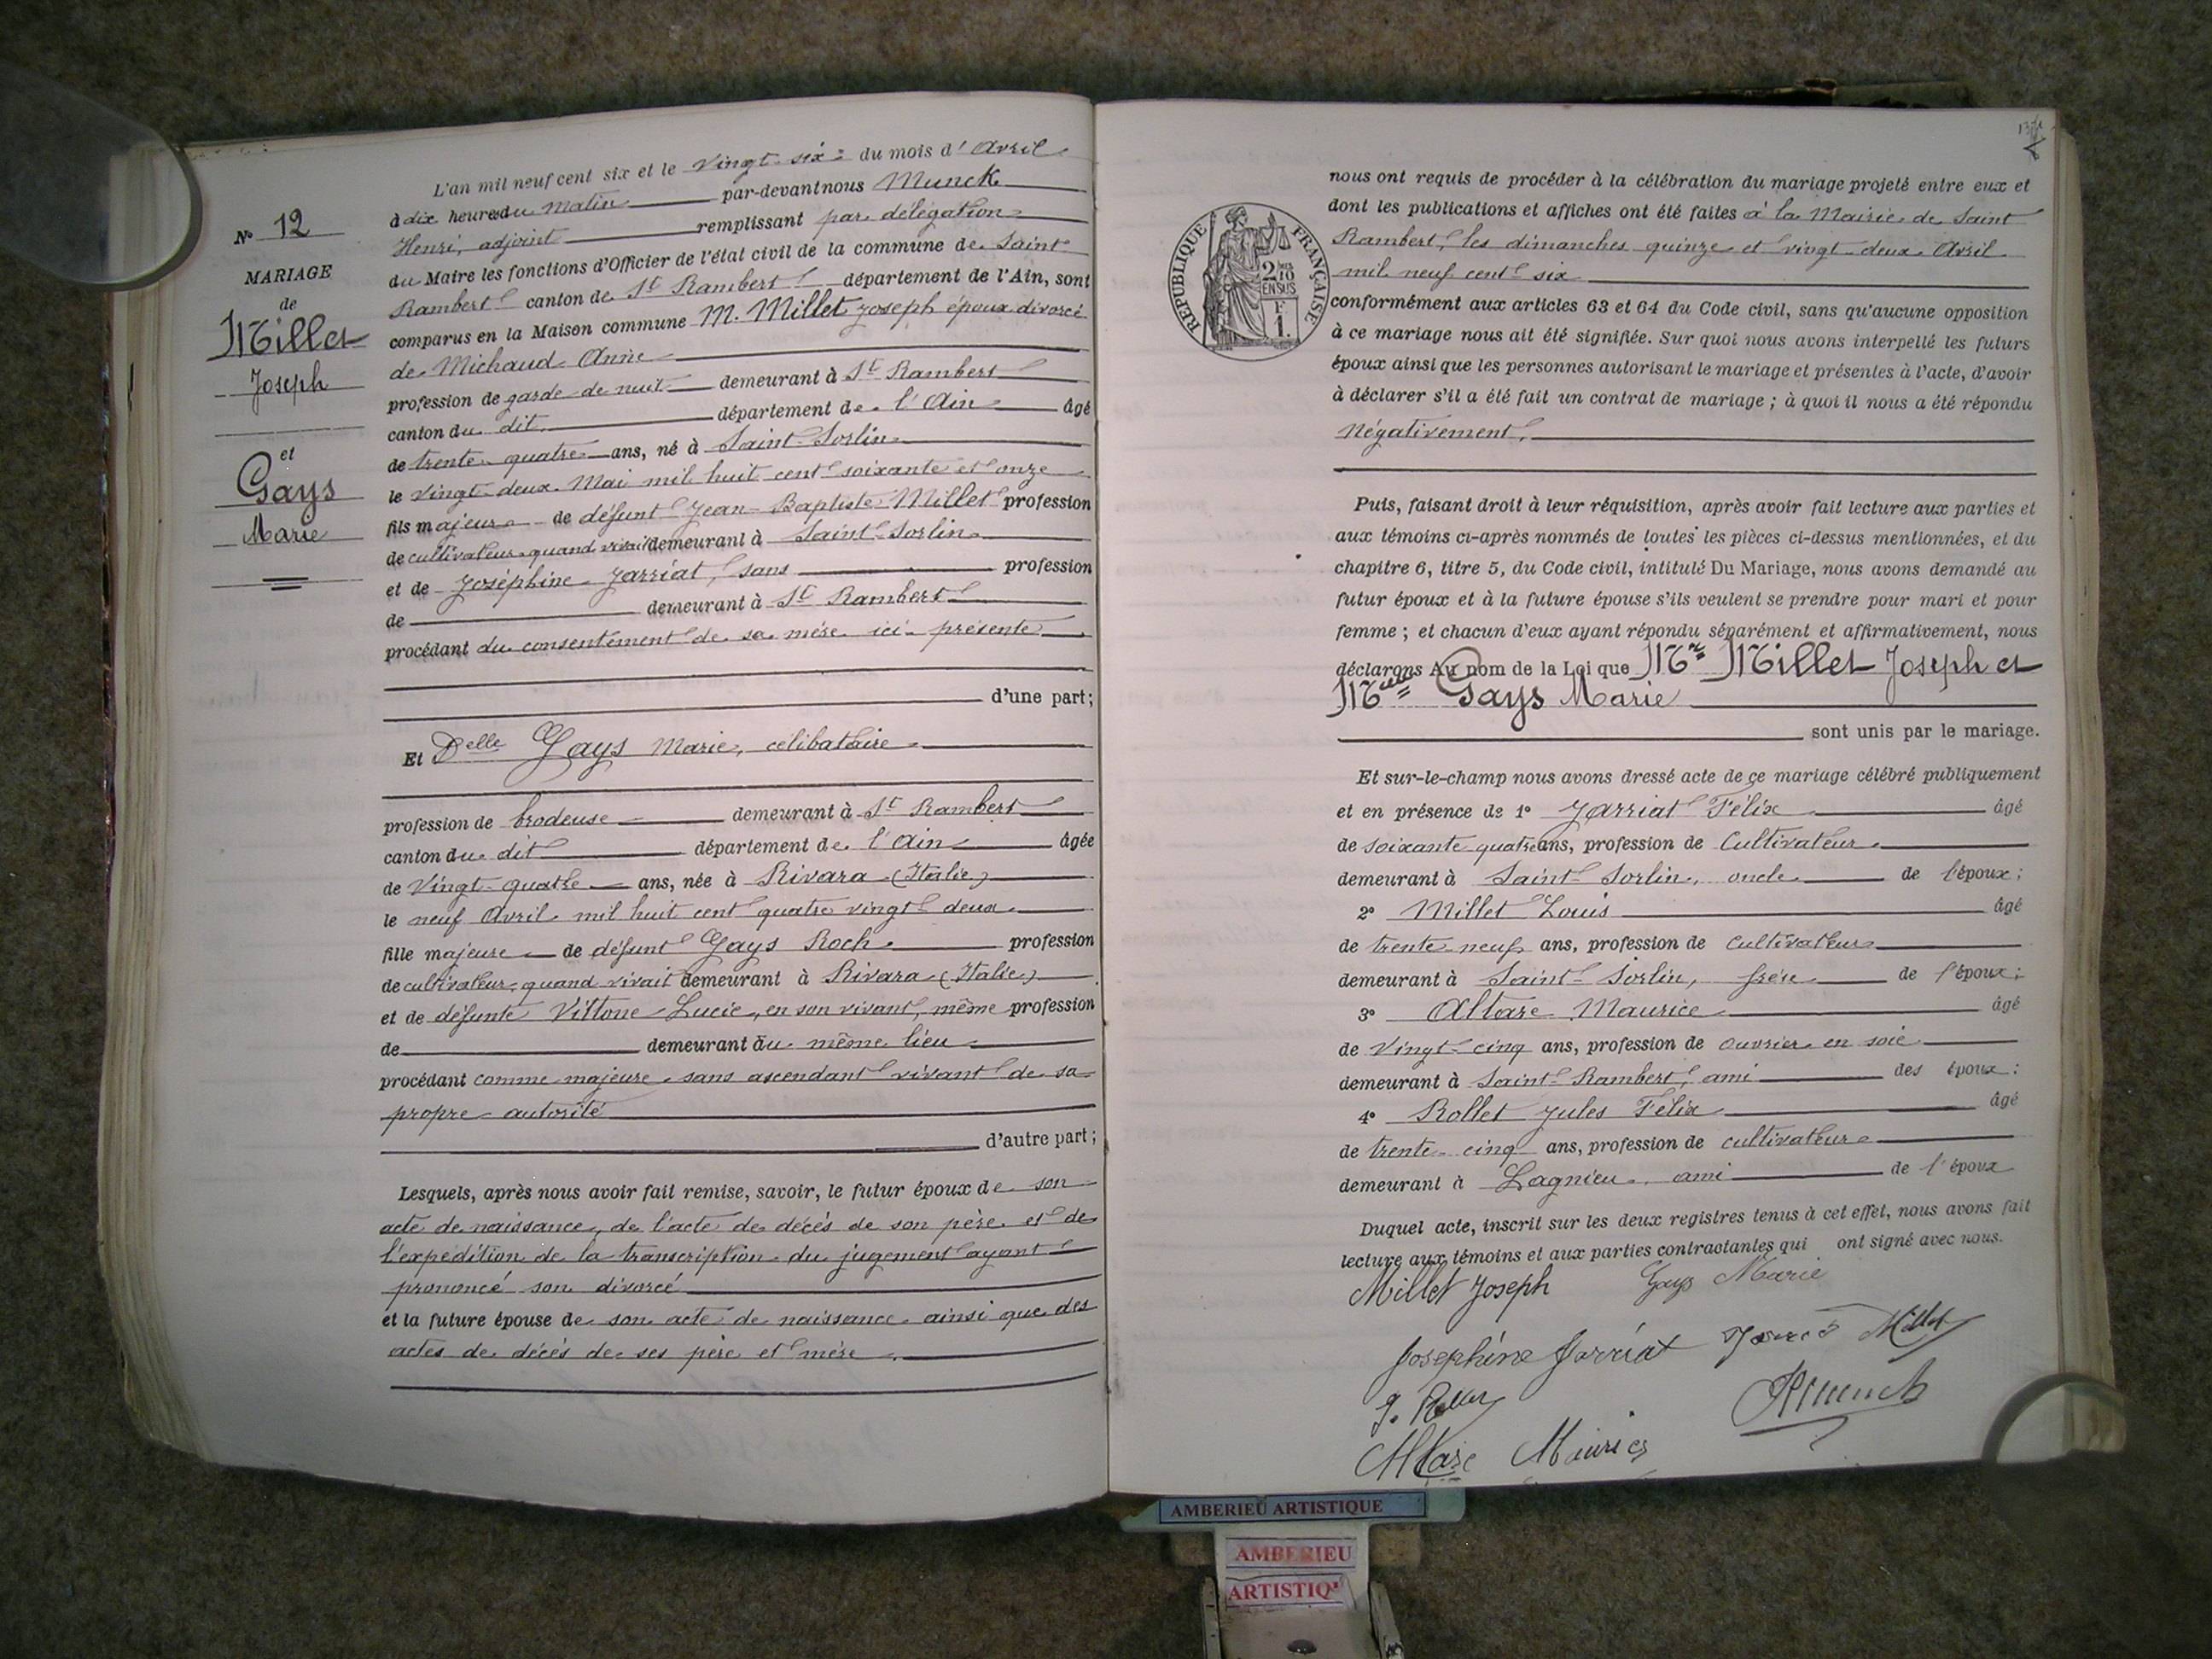 N° 12
MARIAGE
de
Millet
Joseph
et
Gays
Marie
L'an mil neuf cent six et le vingt-six du mois d'Avril
à dix heures du Matin par-devant nous Munck
Henri, adjoint remplissant par délégation
du Maire les fonctions d'Officier de l'état civil de la commune de Saint
Rambert canton de St Rambert département de l'Ain, sont
comparus en la Maison commune M. Millet Joseph époux divorcé
de Michaud Anne
profession de garde de nuit demeurant à St Rambert
canton du dit département de l'Ain âgé
de trente quatre ans, né à Saint-Sorlin
le vingt-deux Mai mil huit cent soixante et onze
fils majeur de défunt Jean-Baptiste Millet profession
de cultivateur quand vivait demeurant à Saint-Sorlin
et de Joséphine Jarriat, sans profession
de demeurant à St Rambert
procédant du consentement de sa mère ici présente
d'une part;
Et Delle Gays Marie, célibataire
profession de brodeuse demeurant à St Rambert
canton du dit département de l'Ain âgée
de Vingt-quatre ans, née à Rivara (Italie)
le neuf Avril mil huit cent quatre vingt deux
fille majeure de défunt Gays Roch profession
de cultivateur, quand vivait demeurant à Rivara (Italie)
et de défunte Vittone Lucie, en son vivant, même profession
de demeurant au même lieu
procédant comme majeure sans ascendant vivant de sa
propre autorité
d'autre part;
Lesquels, après nous avoir fait remise, savoir, le futur époux de son
acte de naissance, de l'acte de décès de son père et de
l'expédition de la transcription du jugement ayant
prononcé son divorcé
et la future épouse de son acte de naissance ainsi que des
actes de décès de ses père et mère
nous ont requis de procéder à la célébration du mariage projeté entre eux et
dont les publications et affiches ont été faites à la Mairie de Saint
Rambert, les dimanches quinze et vingt-deux Avril
mil neuf cent six
RÉPUBLIQUE FRANÇAISE
2/10
EN SUS
F
1.
conformément aux articles 63 et 64 du Code civil, sans qu'aucune opposition
à ce mariage nous ait été signifiée. Sur quoi nous avons interpellé les futurs
époux ainsi que les personnes autorisant le mariage et présentes à l'acte, d'avoir
à déclarer s'il a été fait un contrat de mariage ; à quoi il nous a été répondu
Négativement.
Puis, faisant droit à leur réquisition, après avoir fait lecture aux parties et
aux témoins ci-après nommés de toutes les pièces ci-dessus mentionnées, et du
chapitre 6, titre 5, du Code civil, intitulé Du Mariage, nous avons demandé au
futur époux et à la future épouse s'ils veulent se prendre pour mari et pour
femme ; et chacun d'eux ayant répondu séparément et affirmativement, nous
déclarons Au nom de la Loi que Mr Millet Joseph et
Melle Gays Marie
sont unis par le mariage.
Et sur-le-champ nous avons dressé acte de ce mariage célébré publiquement
et en présence de 1° Jarriat Félix âgé
de soixante quatre ans, profession de Cultivateur
demeurant à Saint-Sorlin, oncle de l'époux;
2° Millet Louis âgé
de trente-neuf ans, profession de cultivateur
demeurant à Saint-Sorlin, frère de l'époux;
3° Altare Maurice âgé
de Vingt-cinq ans, profession de ouvrier en soie
demeurant à Saint-Rambert, ami des époux:
4° Rollet Jules Félix âgé
de trente-cinq ans, profession de cultivateur
demeurant à Lagnieu, ami de l'époux
Duquel acte, inscrit sur les deux registres tenus à cet effet, nous avons fait
lecture aux témoins et aux parties contractantes qui ont signé avec nous.
Millet Joseph Gays Marie
Josephine Jarriat Millet
Munck
Altare Maurice
AMBERIEU ARTISTIQUE
AMBERIEU
ARTISTIQ